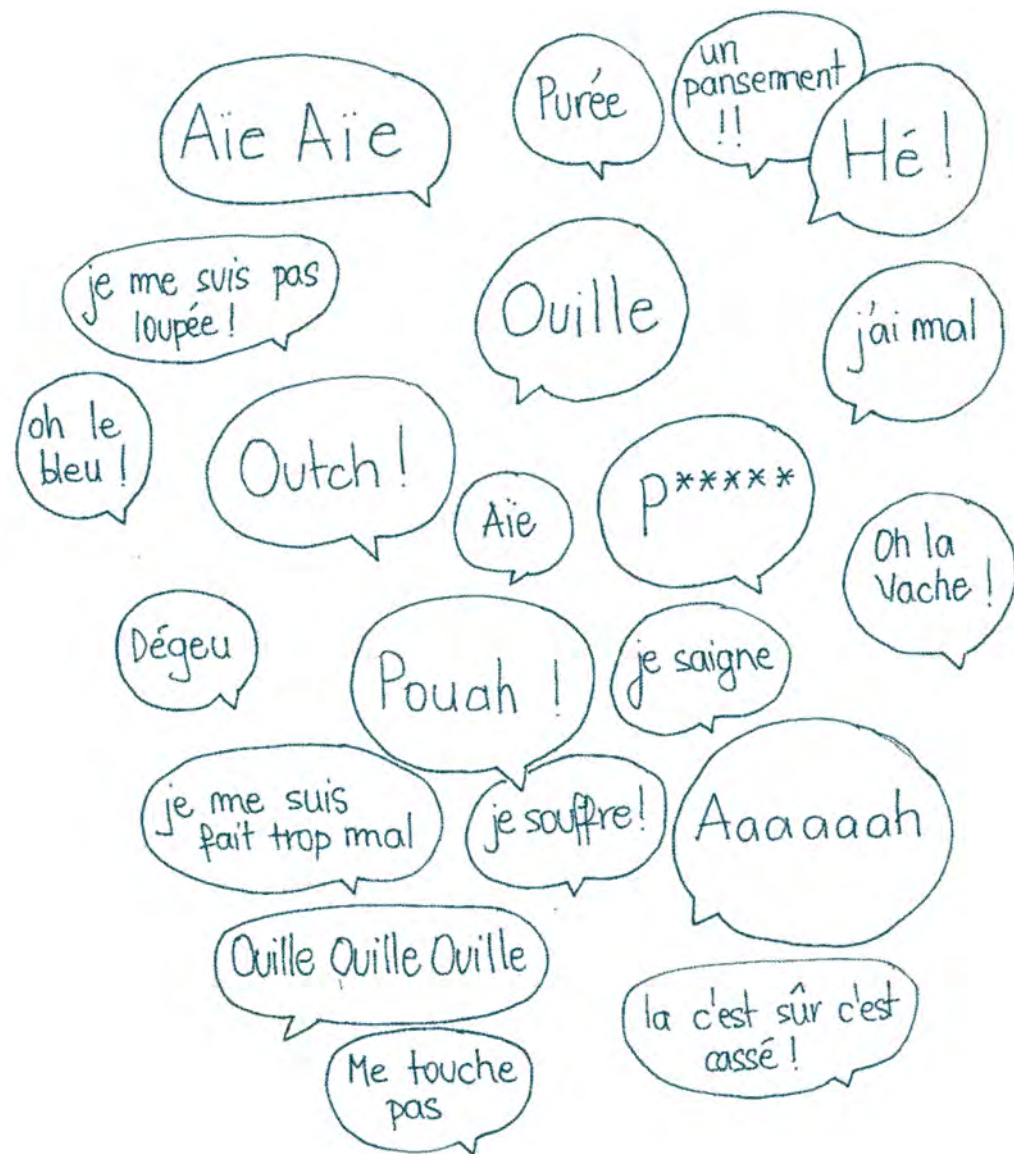 Aïe Aïe
Purée
un
pansement
!!
Hé !
je me suis pas
loupée !
Ouille
j'ai mal
oh le
bleu !
Outch !
Aïe
P*****
Oh la
vache !
Dégeu
Pouah !
je saigne
je me suis
fait trop mal
je souffre !
Aaaaaah
Ouille Ouille Ouille
la c'est sûr c'est
cassé !
Me touche
pas